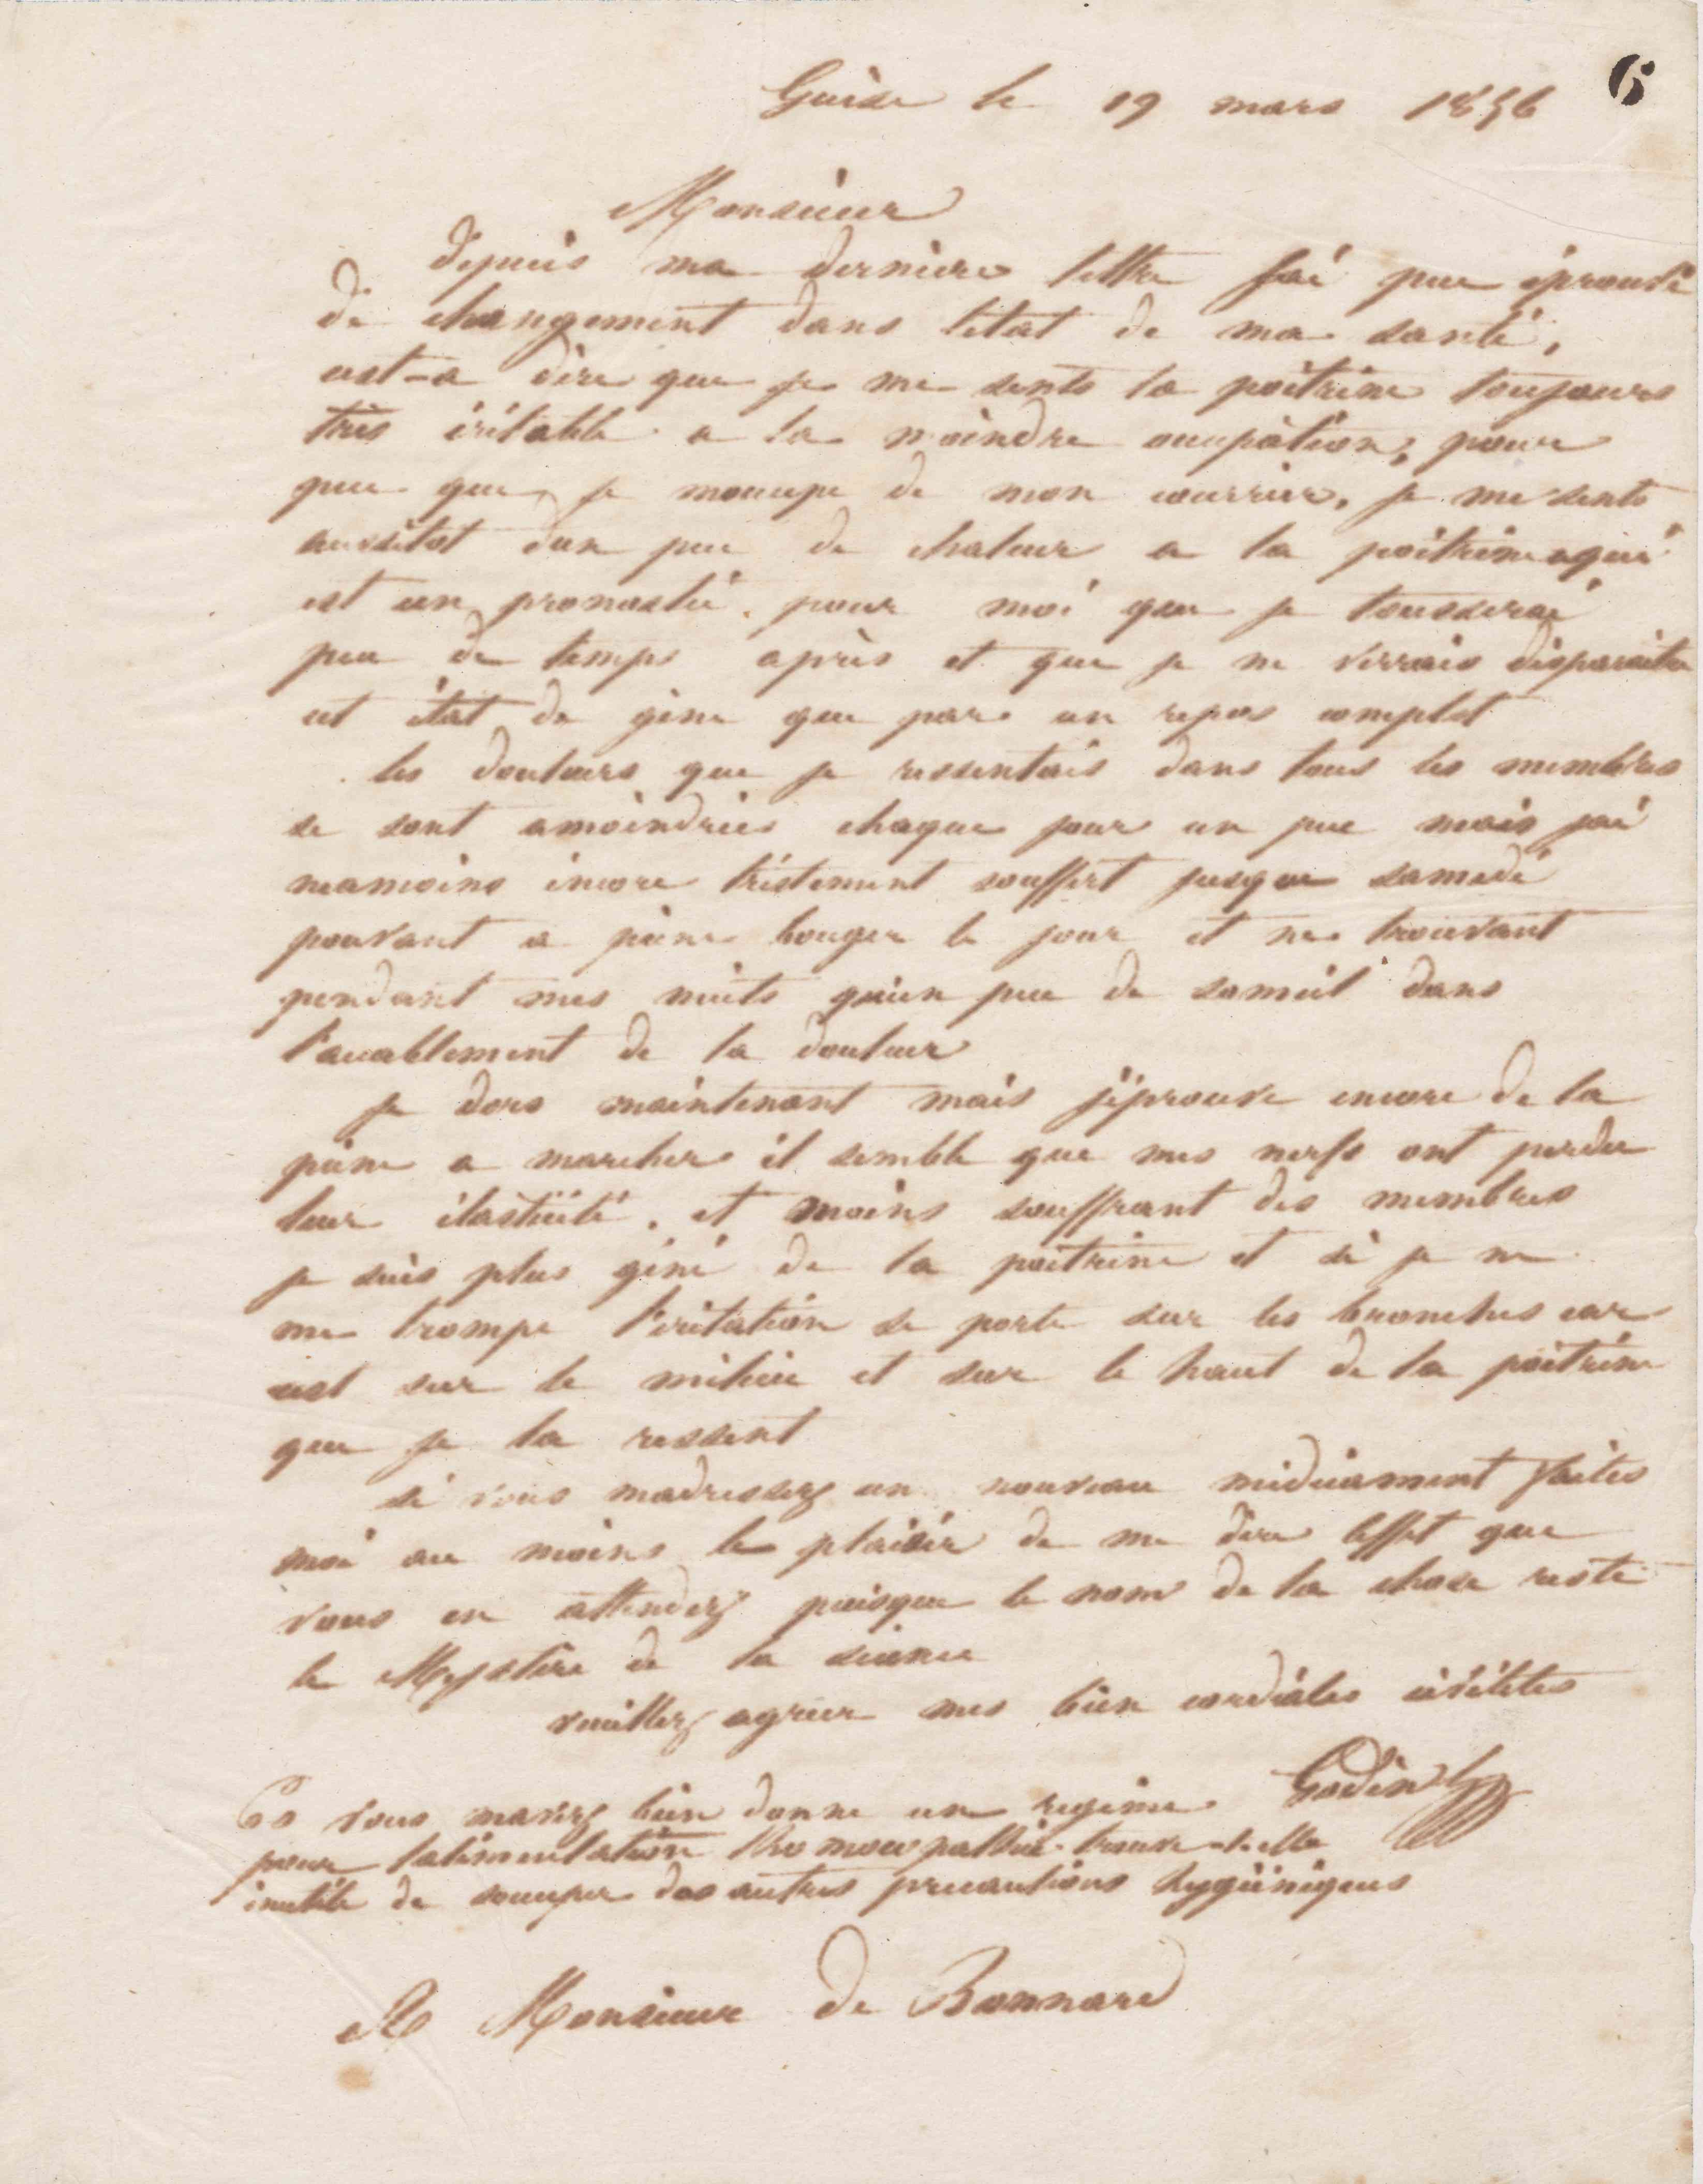 6
Guise le 19 mars 1856
Monsieur
depuis ma derniere lettre jai peu éprouvé
de changement dans letat de ma santé,
cest-a dire que je me sents la poitrine toujours
très iritable a la moindre ocupation, pour
peu que je mocupe de mon courrier, je me sents
aussitot dun peu de chaleur a la poitrine qui
est un pronostic pour moi que je tousserai
peu de temps après et que je ne verrais disparaitre
cet état de gène que par un repos complet
les douleurs que je ressentais dans tous les membres
se sont amoindries chaque jour un peu mais jai
neamoins encore tristement souffert jusque samedi
pouvant a peine bouger le jour et ne trouvant
pendant mes nuits quun peu de someil dans
l'acablement de la douleur
je dors maintenant mais j'éprouve encore de la
peine a marcher il semble que mes nerfs ont perdu
leur élasticité. et moins souffrant des membres
je suis plus gèné de la poitrine et si je ne
me trompe l'iritation se porte sur les bronches car
cest sur le milieu et sur le haut de la poitrine
que je la ressent
si vous madressez un nouveau medicament faites
moi au moins le plaisir de me dire leffet que
vous en attendez puisque le nom de la chose reste
le Mystère de la science
veuillez agreer mes bien cordiales civilités
Godin
Ps vous mavez bien donne un regime
pour lalimentation lhomoeopathie trouve-telle
inutile de socuper des autres precautions hygièniques
A Monsieur de Bonnard